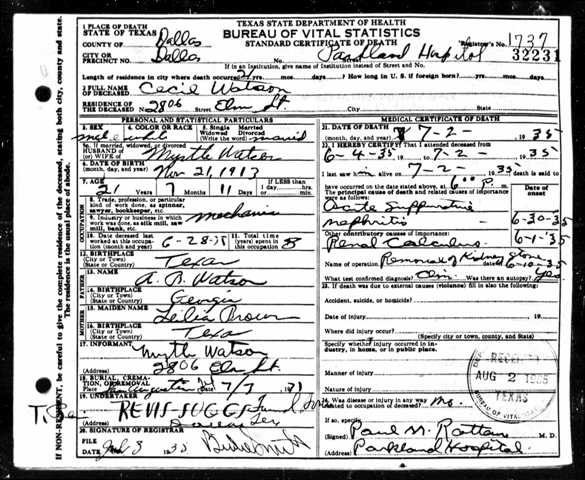 TEXAS STATE DEPARTMENT OF HEALTH
BUREAU OF VITAL STATISTICS
STANDARD CERTIFICATE OF DEATH
1 PLACE OF DEATH
STATE OF TEXAS
COUNTY OF Dallas
CITY OR PRECINCT NO. Dallas
No. Parkland Hospital
Registrar's No. 1737
32231
If in an Institution, give name of Institution instead of Street and No.
Length of residence in city where death occurred 21 yrs. mos. days? How long in U. S. if foreign born? yrs. mos. days
2 FULL NAME OF DECEASED Cecil Watson
RESIDENCE OF THE DECEASED No. 2806 Street Elm St City State
PERSONAL AND STATISTICAL PARTICULARS
3. SEX male
4. COLOR OR RACE
5. Single Married Widowed Divorced (Write the word) married
5a. If married, widowed, or divorced
HUSBAND OF (or) WIFE OF Myrtle Watson
6. DATE OF BIRTH (month, day, and year) Nov 21, 1913
7. AGE 21 Years 7 Months 11 Days If LESS than 1 day, hrs. or min.
OCCUPATION
8. Trade, profession, or particular kind of work done, as spinner, sawyer, bookkeeper, etc. mechanic
9. Industry or business in which work was done, as silk mill, saw mill, bank, etc.
10. Date deceased last worked at this occupation (month and year)
11. Total time (years) spent in this occupation
12. BIRTHPLACE (City or Town) (State or Country) Texas
FATHER
13. NAME A. B. Watson
14. BIRTHPLACE (City or Town) (State or Country) Georgia
MOTHER
15. MAIDEN NAME Lelia Brown
16. BIRTHPLACE (City or Town) (State or Country) Texas
17. INFORMANT Myrtle Watson
(Address) 2806 Elm St.
18. BURIAL, CREMATION, OR REMOVAL
19. UNDERTAKER REVIS-SUGGS Funeral Home
(Address) Dallas Tex
20. SIGNATURE OF REGISTRAR
FILE DATE 3 1935
MEDICAL CERTIFICATE OF DEATH
21. DATE OF DEATH (month, day, and year) 7-2- 1935
22. I HEREBY CERTIFY That I attended deceased from
6-4-35 to 7-2- 1935
I last saw him alive on 7-2- 1935 death is said to have occurred on the date stated above, at 6:00 P. m.
The principal cause of death and related causes of importance were as follows:
Date of onset
Suppurative
nephritis 6-30-35
Other contributory causes of importance:
Renal Calculus. 6-1-35
Name of operation Removal of kidney stone
What test confirmed diagnosis? Clin. Was there an autopsy? Yes
23. If death was due to external causes (violence) fill in also the following:
Accident, suicide, or homicide?
Date of injury 19
Where did injury occur?
(Specify city or town, county, and State)
Specify whether injury occurred in industry, in home, or in public place.
Manner of injury
Nature of injury
24. Was disease or injury in any way related to occupation of deceased? no.
If so, specify
(Signed) Paul M. Rattan M. D.
(Address) Parkland Hospital.
RECEIVED
AUG 2 1935
TEXAS
BUREAU OF VITAL